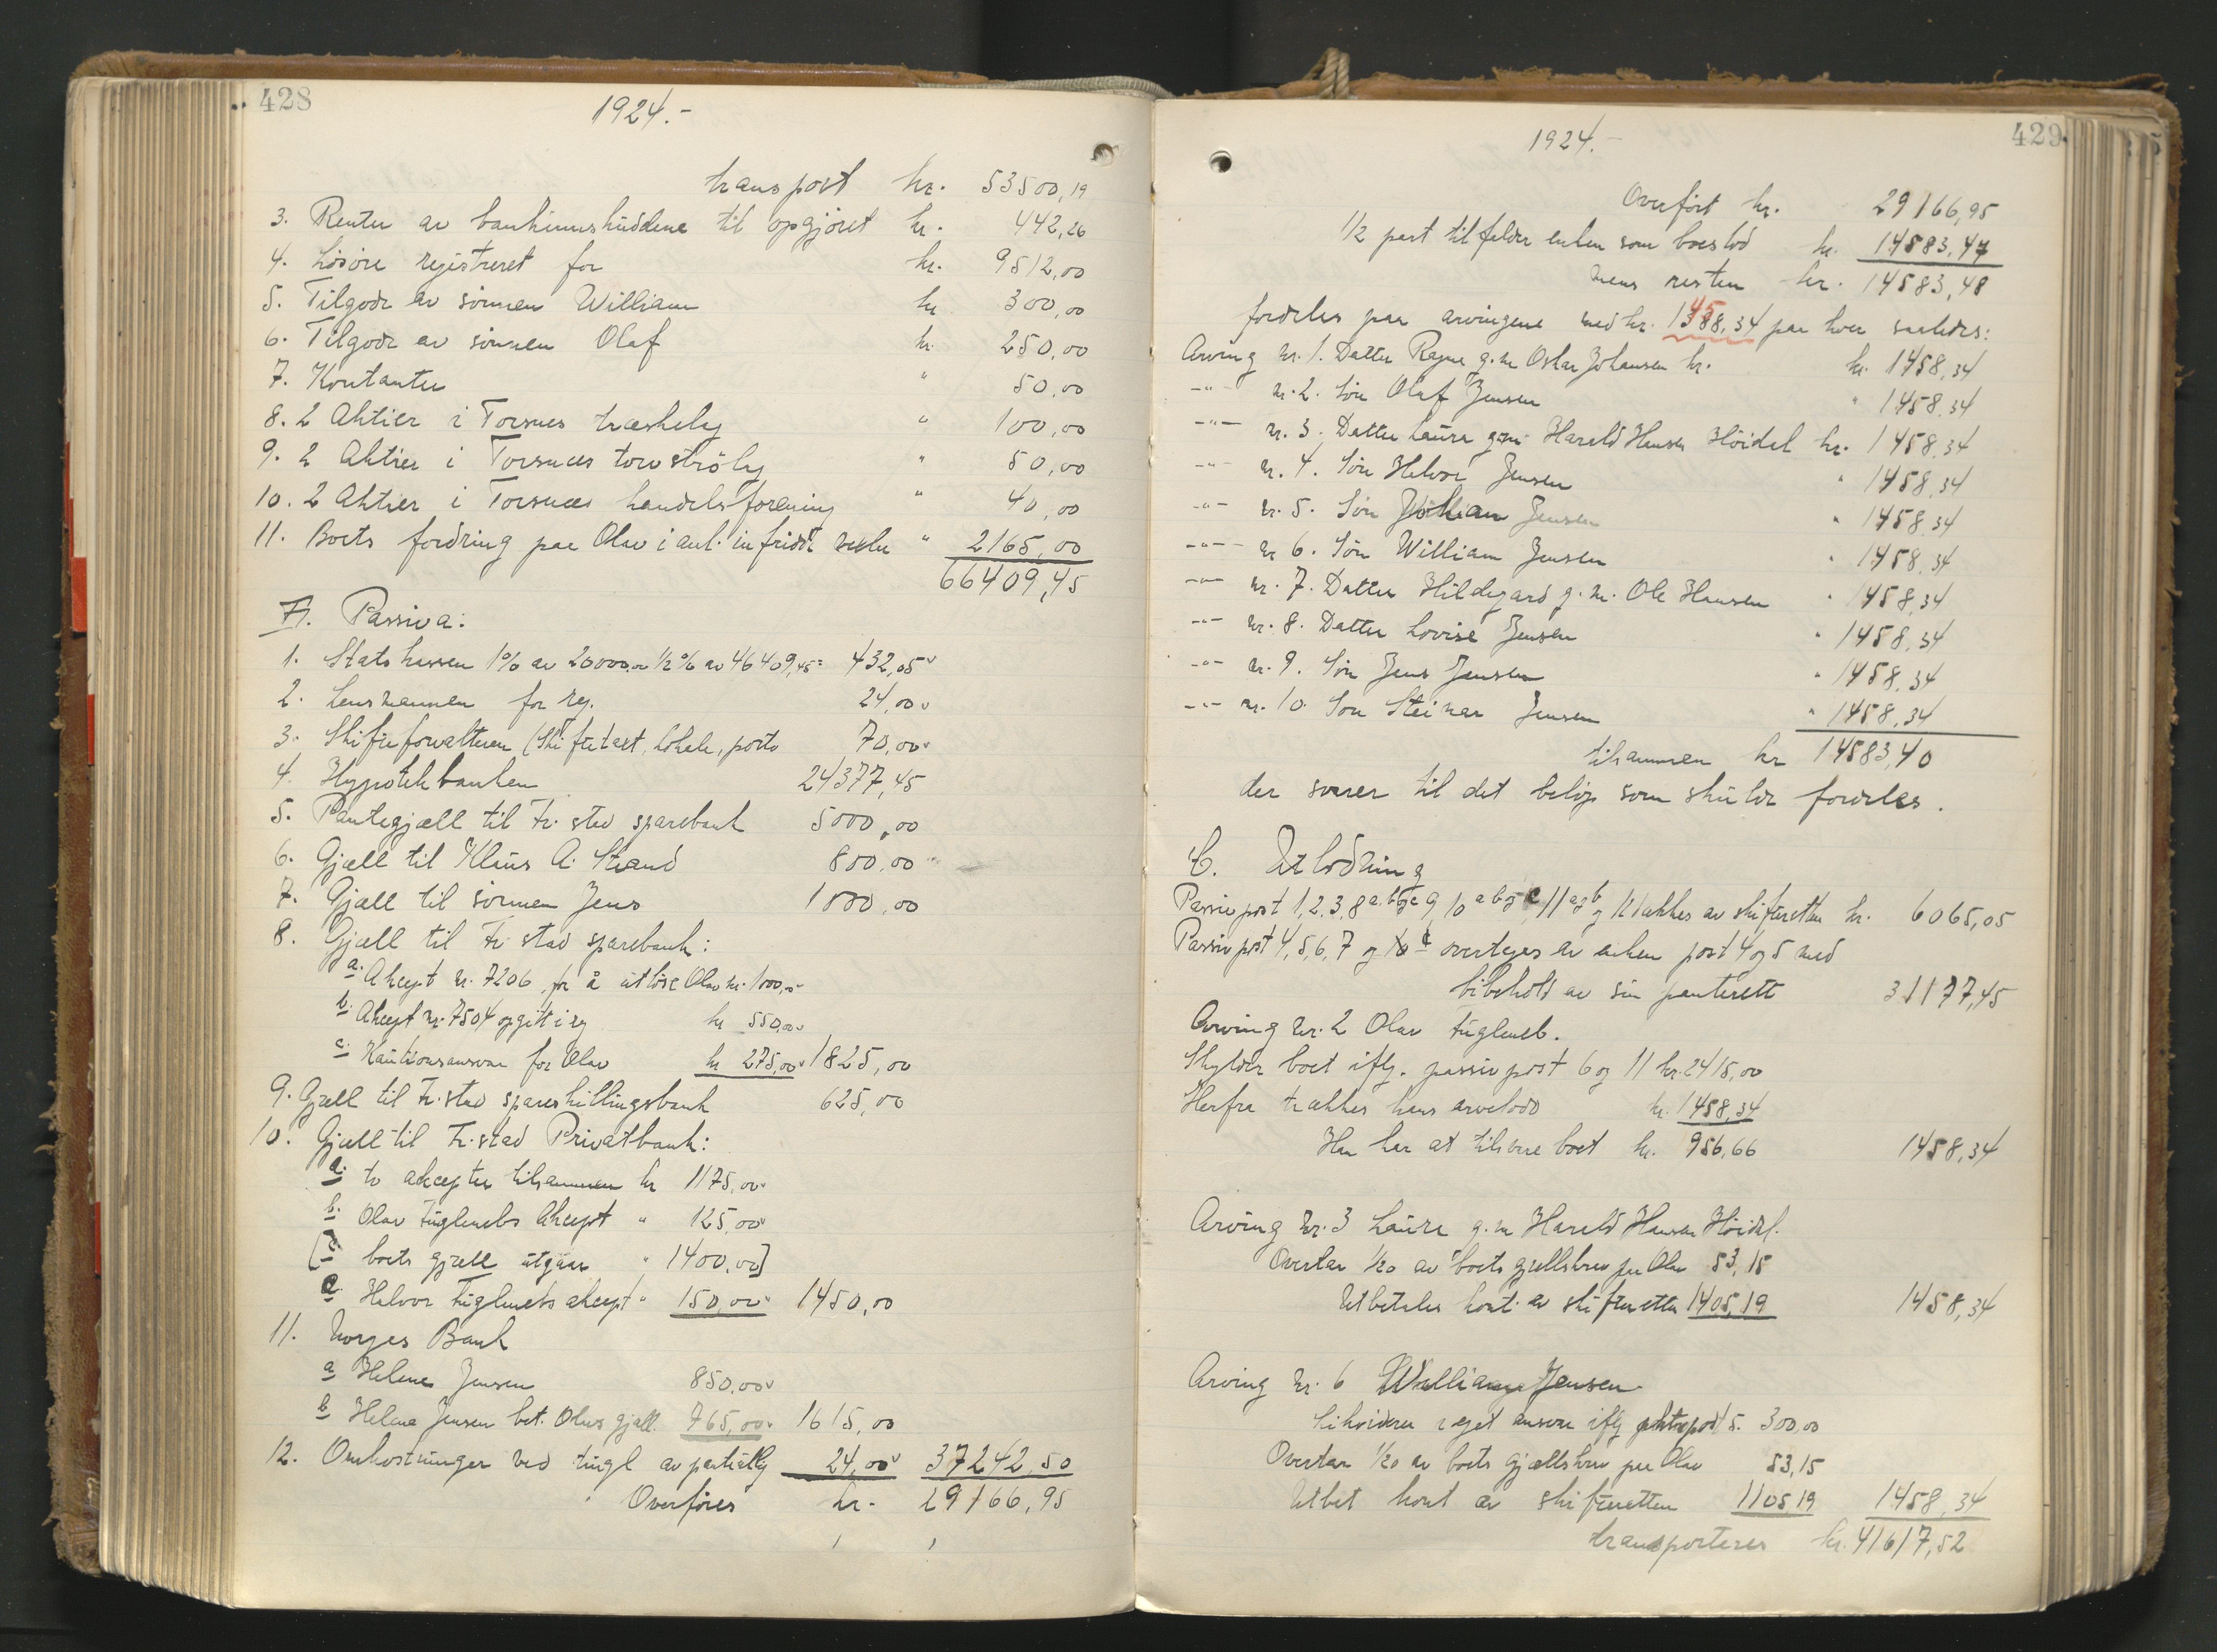 428
1924.-
transport kr. 53500,19
3. Renter av bankinnskuddene til opgjöret kr. 442,26
4. Lösöre registreret for kr. 9512,00
5. Tilgode av sönnen William kr 300,00
6. Tilgode av sönnen Olaf kr. 250,00
7. Kontanter " 50,00
8. 2 Aktier i Torsnes træskeby " 100,00
9. 2 Aktier i Torsnæs torvströly " 50,00
10. 2 Aktier i Torsnæs handelsforening " 40,00
11. Boets fordring paa Olav i anl. infridde veksler " 2165,00
66409,45
Passiva:
1. Statskassen 1% av 20000,00 1/2% av 46409,45= 432,05
2. Lensmannen for reg. 24,00
3. Skifteforvalteren (Skiftetakt, lokale, porto 70,00
4. Hypotekbanken 24377,45
5. Pantegjæll til Fr.stad sparebank 5000,00
6. Gjæll til Klaus A. Strand 800,00
7. Gjæll til sönnen Jens 1000,00
8. Gjæll til Fr.stad sparebank:
a. Akcept nr. 7206 for å utlöse Olav kr. 1000,00
b. Akcept nr. 7504 opgitt i reg kr 550,00
c. Kautionsansvar for Olav kr 275,00 1825,00
9. Gjæll til Fr.stad spareskillingsbank 625,00
10. Gjæll til Fr.stad Privatbank:
a. to akcepter tilsammen kr 1175,00
b. Olav Fuglenebs Akcept " 125,00
[c boets gjæll utgaar " 1400,00]
c. Halvor Fuglenebs akcept " 150,00 1450,00
11. Norges Bank
a Helene Jensen 850,00
b Helene Jensen bet. Olavs gjæll. 765,00 1615,00
12. Omkostninger ved tingl av partiellg 24,00 37242,50
Overföres kr. 29166,95
429
1924.-
Overfört kr. 29166,95
1/2 part tilfalder enken som boeslod kr. 14583,47
mens resten kr. 14583,48
fordeles paa arvingene med kr. 1458,34 paa hver saaledes:
Arving nr. 1. Datter Ragna g.m. Oskar Johansen kr. kr. 1458,34
-"- nr. 2. Sön Olaf Jensen " 1458,34
-"- nr. 3. Datter Laura g.m. Harald Hansen Höidal kr. 1458,34
-"- nr. 4. Sön Halvor Jensen " 1458,34
-"- nr. 5. Sön Johan Jensen " 1458,34
-"- nr 6. Sön William Jensen " 1458,34
-"- nr. 7. Datter Hildegard g.m. Ole Hansen " 1458,34
-"- nr. 8. Datter Lovise Jensen " 1458,34
-"- nr. 9. Sön Jens Jensen " 1458,34
-"- nr. 10. Sön Steinar Jensen " 1458,34
tilsammen kr 14583,40
der svarer til det belöp som skulde fordeles.
C. Utlodning
Passivpost 1, 2, 3, 8 a. b og c 9, 10 a b og c 11 a og b og 12 dækkes av skifteretten kr. 6065,05
Passivpost 4, 5, 6, 7 overtages av enken post 4 og 5 med
bibehold av sin panterett 31177,45
Arving nr. 2 Olav Fugleneb.
Skylder boet iflg. passivpost 6 og 11 kr. 2415,00
Herfra trækkes hans arvelodd kr. 1458,34
Han har at tilsvare boet kr. 956,66 1458,34
Arving nr. 3 Laura g.m Harald Hansen Höidal.
Overtar 1/20 av boets gjællsbrev paa Olav 53,15
Utbetales kont. av skifteretten 1405,19 1458,34
Arving nr. 6 William Jensen
Likviderer i eget ansvar iflg aktivpost 5. 300,00
Overtar 1/20 av boets gjællsbrev paa Olav 53,15
Utbet kont av skifteretten 1105,19 1458,34
transporteres kr. 41617,52